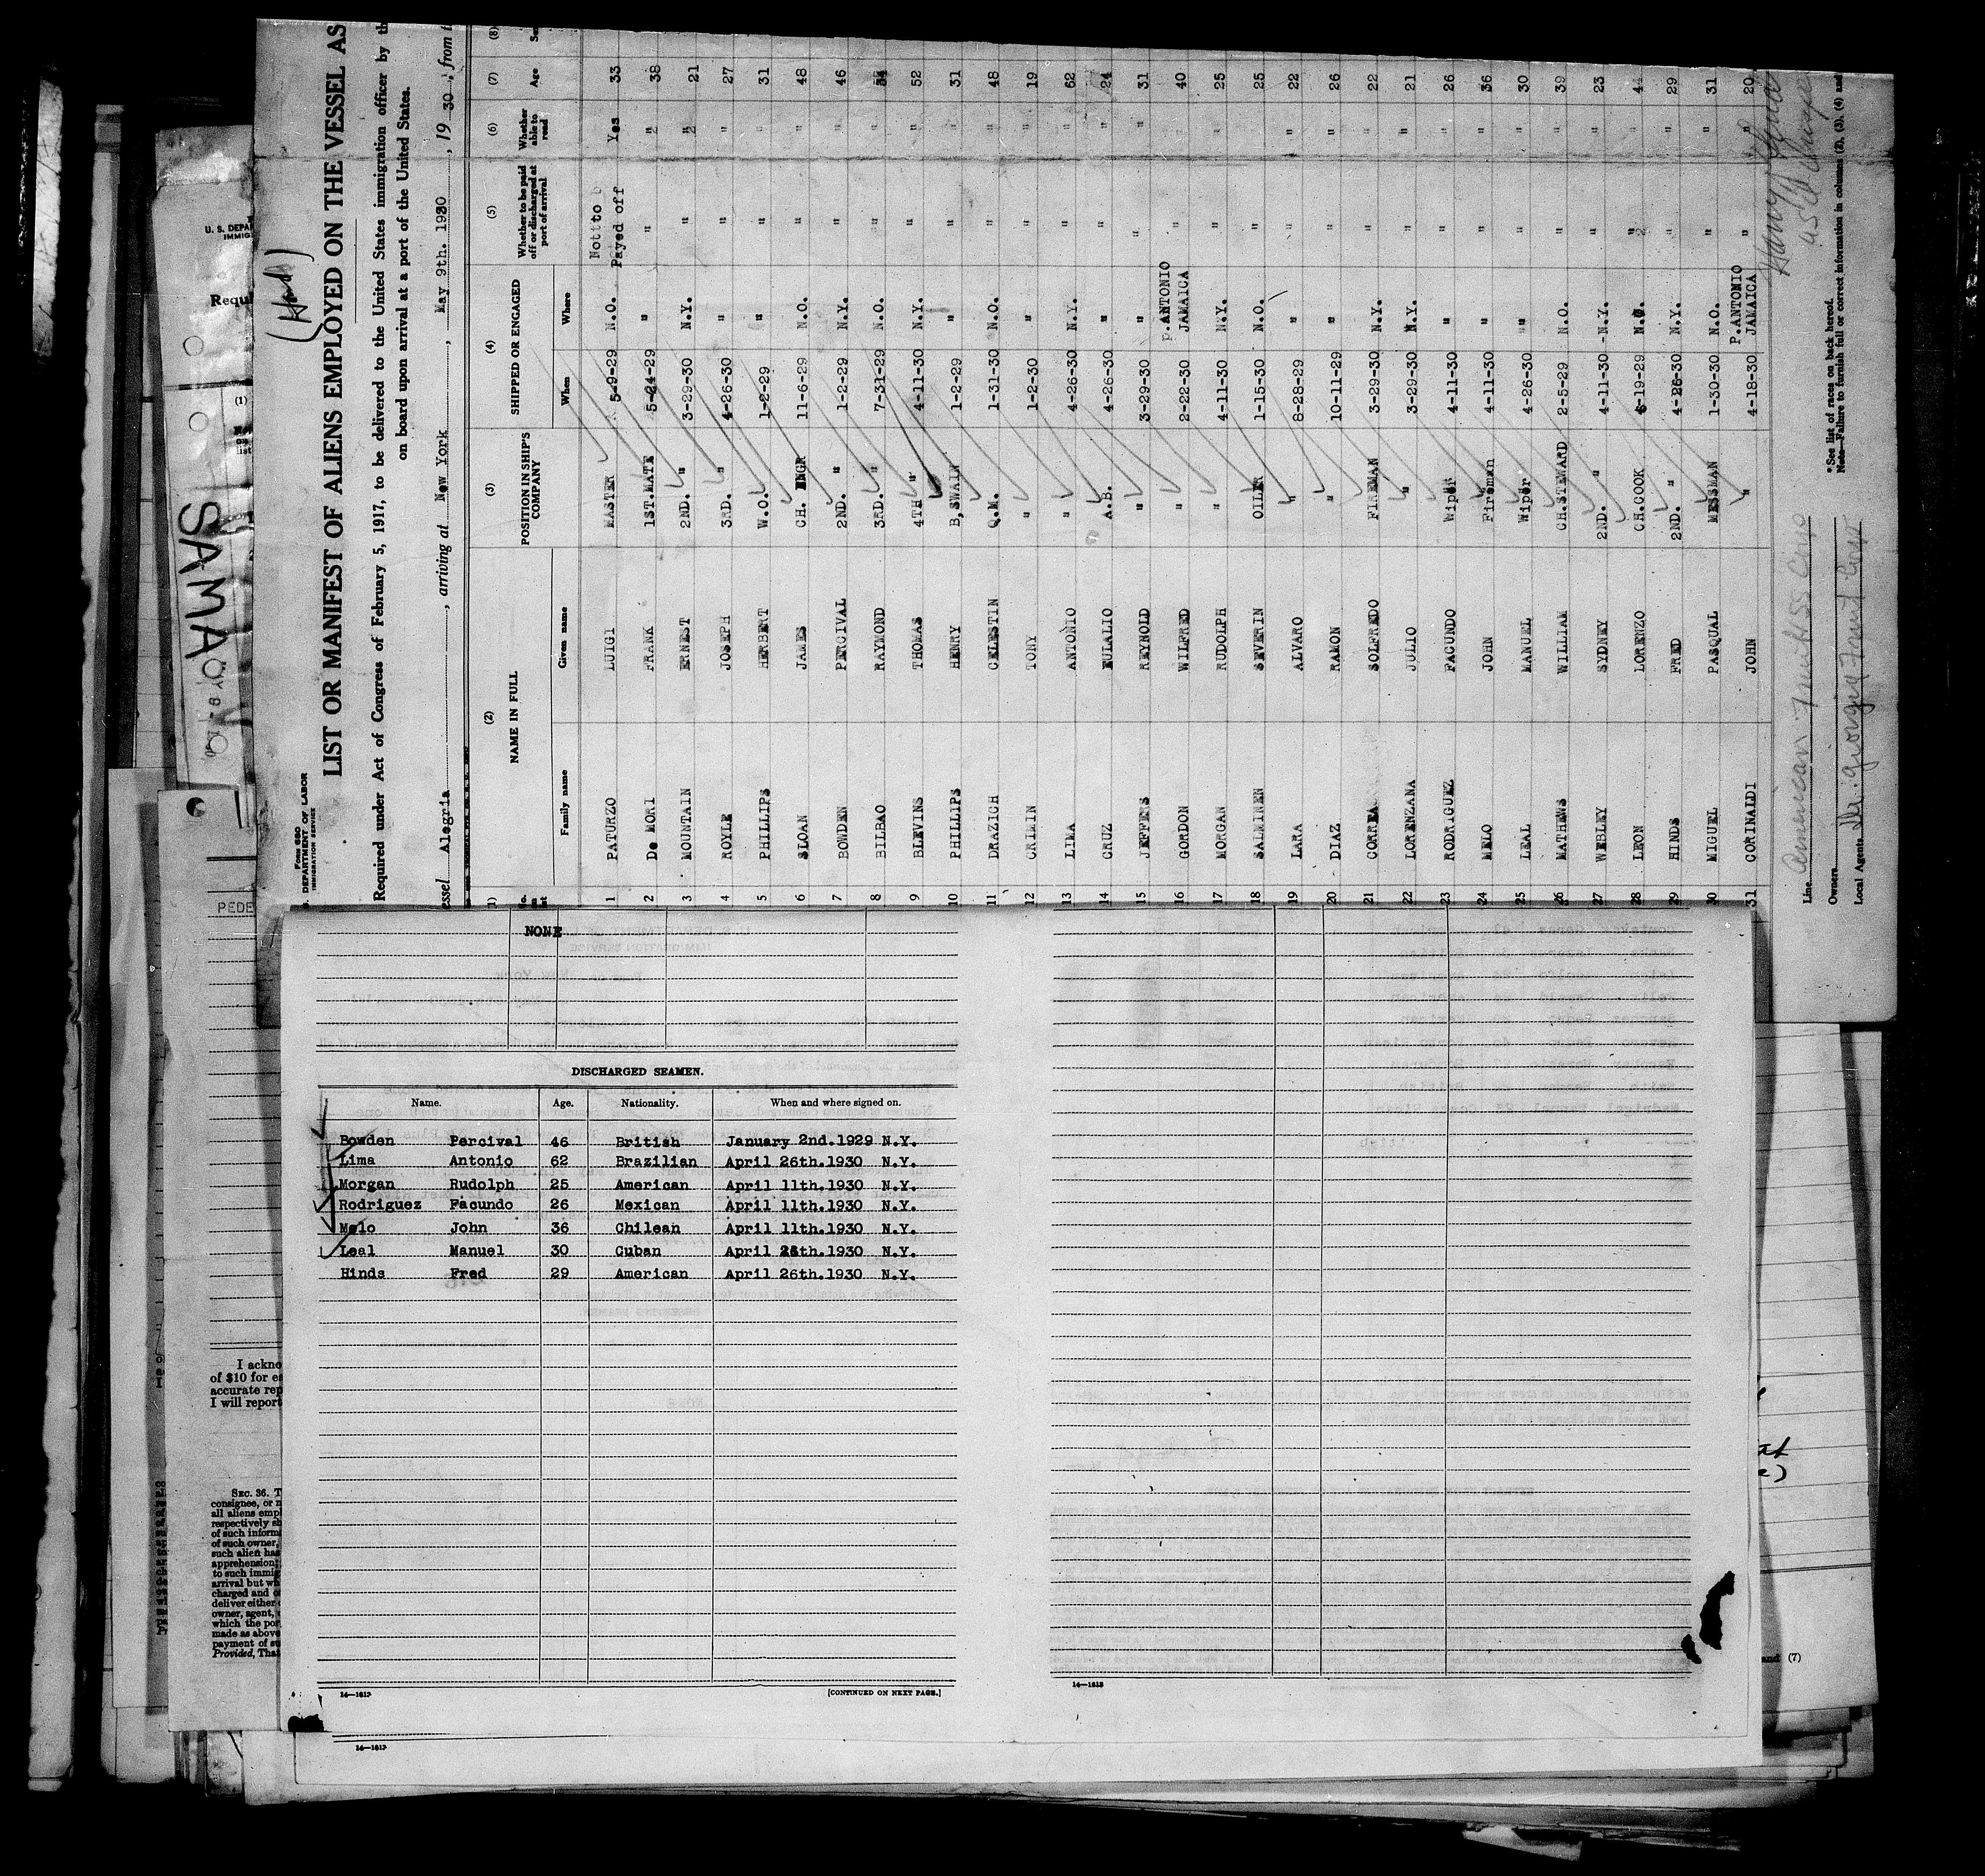 (Hond)
Form 680
DEPARTMENT OF LABOR
IMMIGRATION SERVICE
LIST OR MANIFEST OF ALIENS EMPLOYED ON THE VESSEL AS
Required under Act of Congress of February 5, 1917, to be delivered to the United States immigration officer by th
on board upon arrival at a port of the United States.
essel Alegria, arriving at New York, May 9th. 1930, 1930, from
(1) (2) (3) (4) (5) (6) (7) (8)
NAME IN FULL POSITION IN SHIP'S COMPANY SHIPPED OR ENGAGED Whether to be paid off or discharged at port of arrival Whether able to read Age Se
Family name Given name When Where
1 PATURZO LUIGI MASTER 5-9-29 N.O. Notto Payed off Yes 33
2 De MORI FRANK 1ST.MATE 5-24-29 " " " 38
3 MOUNTAIN ERNEST 2ND. " 3-29-30 N.Y. " " 21
4 ROYLE JOSEPH 3RD. " 4-26-30 " " " 27
5 PHILLIPS HERBERT W.O. 1-2-29 " " " 31
6 SLOAN JAMES CH. ENGR 11-6-29 N.O. " " 48
7 BOWDEN PERCIVAL 2ND. " 1-2-29 N.Y. " " 46
8 BILBAO RAYMOND 3RD. " 7-31-29 N.O. " "
9 BLEVINS THOMAS 4TH " 4-11-30 N.Y. " " 52
10 PHILLIPS HENRY B,SWAIN 1-2-29 " " " 31
11 DRAZICH CELESTIN Q.M. 1-31-30 N.O. " " 48
12 CRIMIN TONY " 1-2-30 " " " 19
13 LIMA ANTONIO " 4-26-30 N.Y. " " 62
14 CRUZ EULALIO A.B. 4-26-30 " " " 24
15 JEFFERS REYNOLD " 3-29-30 " " " 31
16 GORDON WILFRED " 2-22-30 P.ANTONIO JAMAICA " 40
17 MORGAN RUDOLPH " 4-11-30 N.Y. " " 25
18 SALMINEN SEVERIN OILER 1-15-30 N.O. " 25
19 LARA ALVARO " 8-28-29 " " " 22
20 DIAZ RAMON " 10-11-29 " " " 26
21 CORREA SOLFREDO FIREMAN 3-29-30 N.Y. " " 22
22 LORENZANA JULIO " 3-29-30 N.Y. " " 21
23 RODRIGUEZ FACUNDO Wiper 4-11-30 " " " 26
24 MELO JOHN Fireman 4-11-30 " " " 36
25 LEAL MANUEL Wiper 4-26-30 " " " 30
26 MATHEWS WILLIAM CH.STEWARD 2-5-29 N.O. " " 39
27 WEBLEY SYDNEY 2ND. " 4-11-30 N.Y. " " 23
28 LEON LORENZO CH.COOK -19-29 N.O. " " 44
29 HINDS FRED 2ND. " 4-26-30 N.Y. " " 29
30 MIGUEL PASQUAL MESSMAN 1-30-30 N.O. " " 31
31 CORINALDI JOHN " 4-18-30 P.ANTONIO JAMAICA " " 20
Line American Fruit & SS Corp
Owners
Local Agents
* See list of races on back hereof.
Note—Failure to furnish full or correct information in columns (2), (3), (4) and
NONE
DISCHARGED SEAMEN.
Name. Age. Nationality. When and where signed on.
Bowden Percival 46 British January 2nd.1929 N.Y.
Lima Antonio 62 Brazilian April 26th.1930 N.Y.
Morgan Rudolph 25 American April 11th.1930 N.Y.
Rodriguez Facundo 26 Mexican April 11th.1930 N.Y.
Melo John 36 Chilean April 11th.1930 N.Y.
Leal Manuel 30 Cuban April 26th.1930 N.Y.
Hinds Fred 29 American April 26th.1930 N.Y.
14—1613 [CONTINUED ON NEXT PAGE.]
14—1613
14—1613
U. S. DEPAR
IMMIG
Requi
(1)
list
SAMA
PEDE
I ackno
of $10 for ea
accurate rep
I will report
SEC. 36. T
consignee, or m
all aliens empl
respectively sh
of such inform
of such owner,
such alien has
apprehension;
to such immig
arrival but wh
charged and o
deliver either o
owner, agent, o
which the por
made as above
payment of su
Provided, That
and (7)